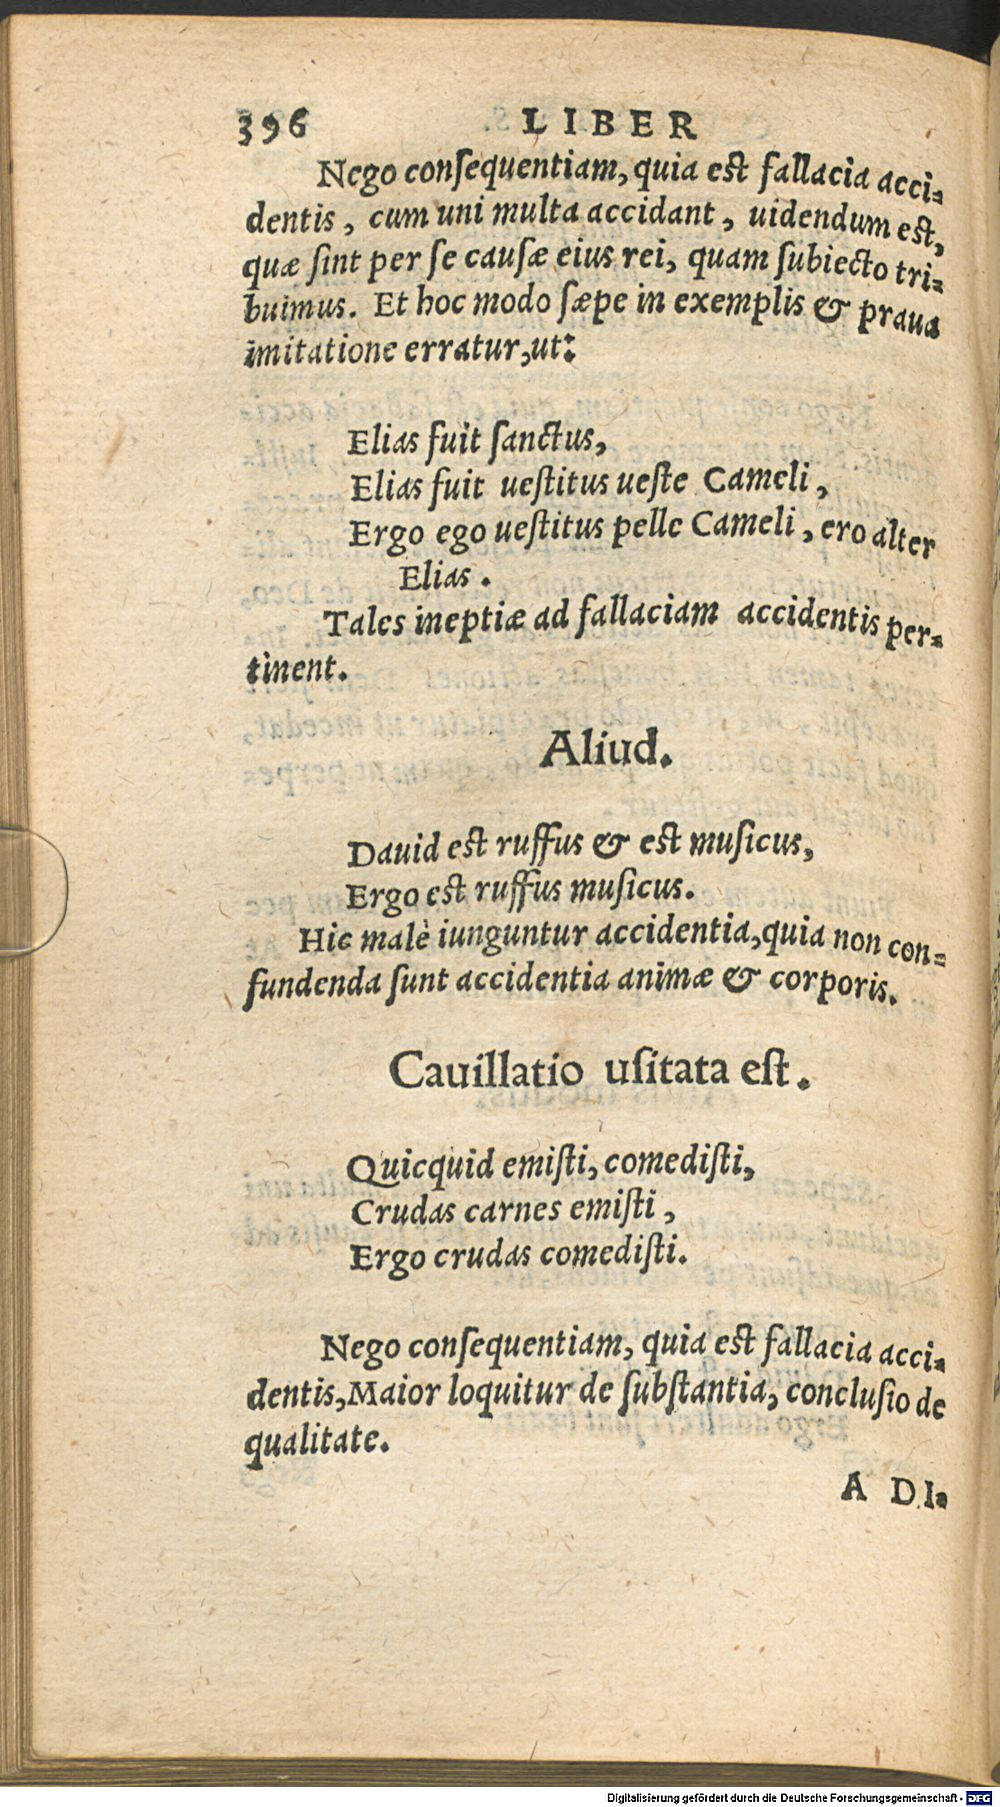 396 LIBER
Nego consequentiam, quia est fallacia acci-
dentis, cum uni multa accidant, uidendum est,
quæ sint per se causæ eius rei, quam subiecto tri-
buimus. Et hoc modo sæpe in exemplis & praua
imitatione erratur, ut:
Elias fuit sanctus,
Elias fuit uestitus ueste Cameli,
Ergo ego uestitus pelle Cameli, ero alter
Elias.
Tales ineptiæ ad fallaciam accidentis per-
tinent.
Aliud.
Dauid est ruffus & est musicus,
Ergo est ruffus musicus.
Hic malè iunguntur accidentia, quia non con-
fundenda sunt accidentia animæ & corporis.
Cauillatio usitata est.
Quicquid emisti, comedisti,
Crudas carnes emisti,
Ergo crudas comedisti.
Nego consequentiam, quia est fallacia acci-
dentis, Maior loquitur de substantia, conclusio de
qualitate.
A DI-
Digitalisierung gefördert durch die Deutsche Forschungsgemeinschaft - DFG